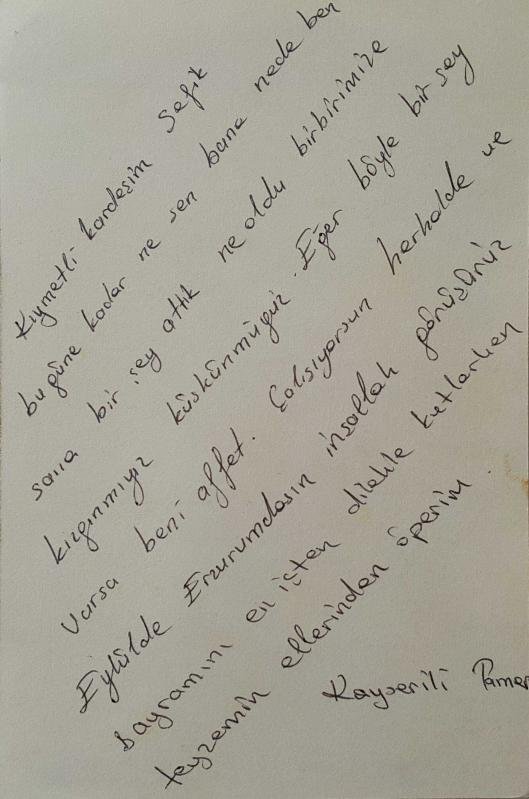 Kıymetli kardeşim Şefik
bu güne kadar ne sen bana nede ben
sana bir şey attık ne oldu birbirimize
kızgınmıyız küskünmüyüz. Eğer böyle bir şey
varsa beni affet. Çalışıyorsun herhalde ve
Eylülde Erzurumdasın inşallah görüşürüz
bayramını en içten dilekle kutlarken
teyzemin ellerinden öperim.
Kayserili Tamer